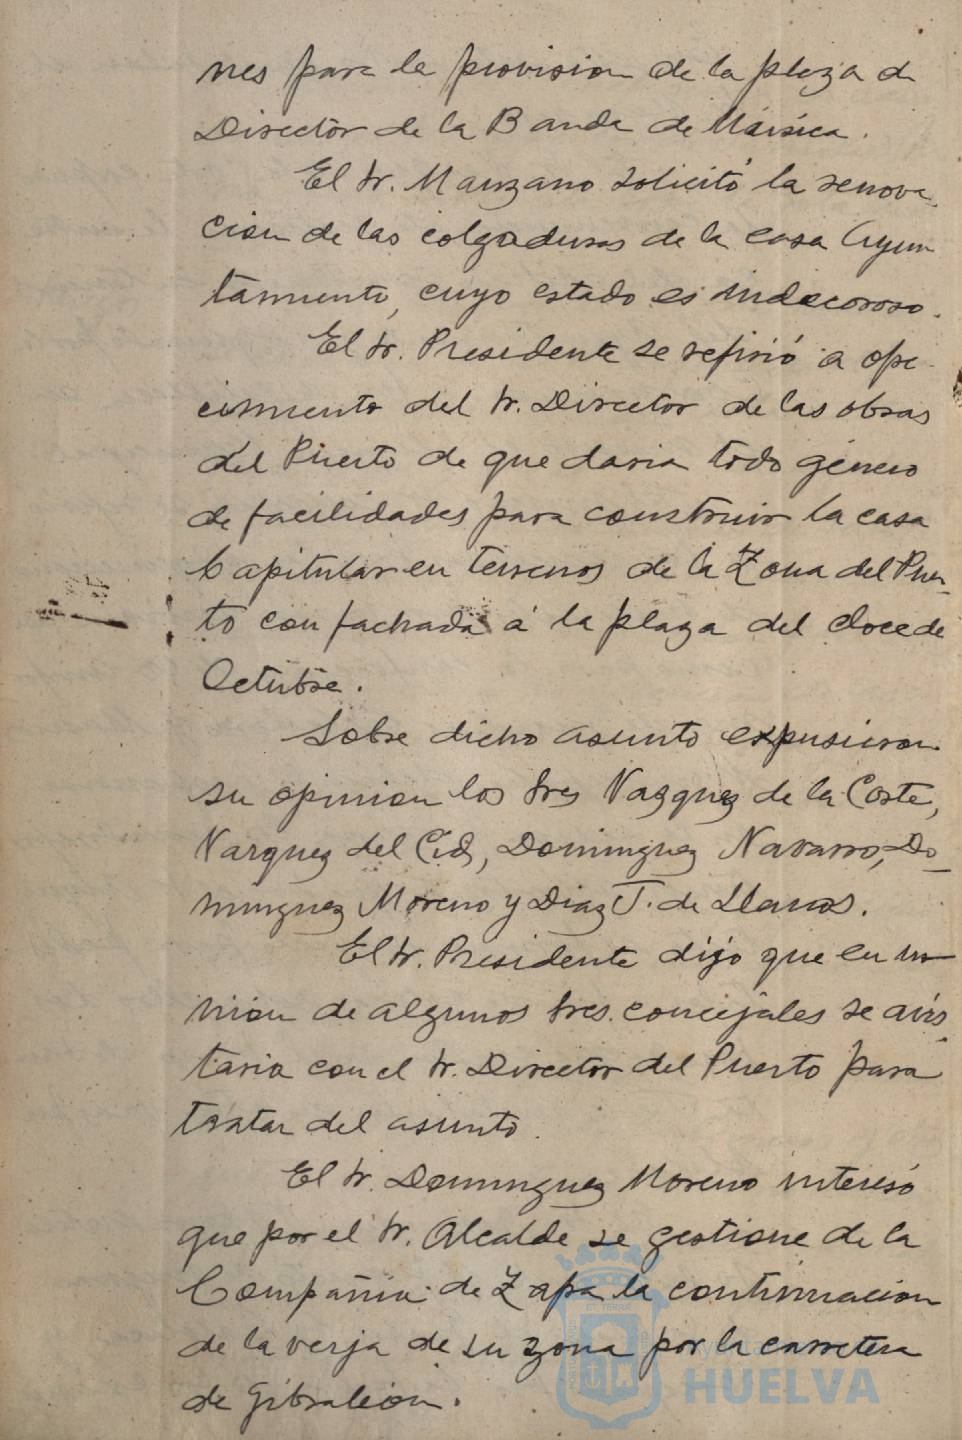 nes para la provision de la plaza de
Director de la Banda de Música.
El Sr. Manzano solicitó la renova-
cion de las colgaduras de la casa Ayun
tamiento, cuyo estado es indecoroso.
El Sr. Presidente se refirió a ofre-
cimiento del Sr. Director de las obras
del Puerto de que daria todo género
de facilidades para construir la casa
Capitular en terrenos de la Zona del Puer-
to con fachada á la plaza del doce de
Octubre.
Sobre dicho asunto expusieron
su opinion los Sres Vazquez de la Corte,
Vazquez del Cid, Dominguez Navarro, Do-
minguez Moreno y Diaz J. de Llanos.
El Sr. Presidente dijo que en u-
nión de algunos Sres. concejales se avis-
taria con el Sr. Director del Puerto para
tratar del asunto.
El Sr. Dominguez Moreno interesó
que por el Sr. Alcalde se gestione de la
Compañia de Zafra la continuacion
de la verja de su zona por la carretera
de Gibraleon.
HUELVA